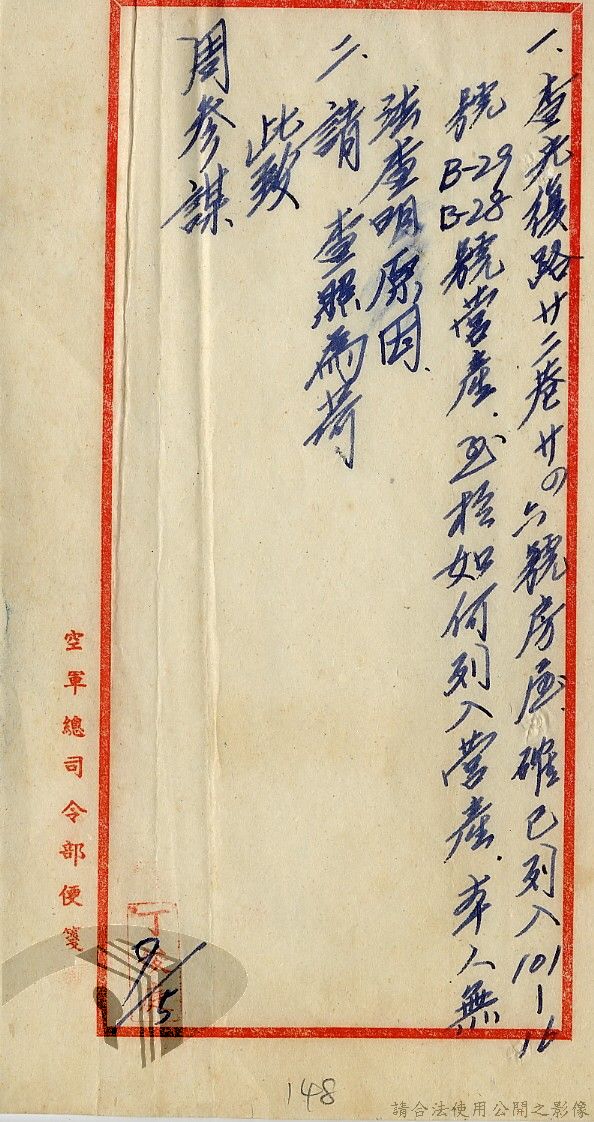 一、查光復路廿二巷廿四六號房屋確已列入101-16
號B-29 B-28號營產．至於如何列入營產．本人無
法查明原因．
二、請 查照為荷
此致
周參謀
空軍總司令部便箋
丁
9/15
148
請合法使用公開之影像